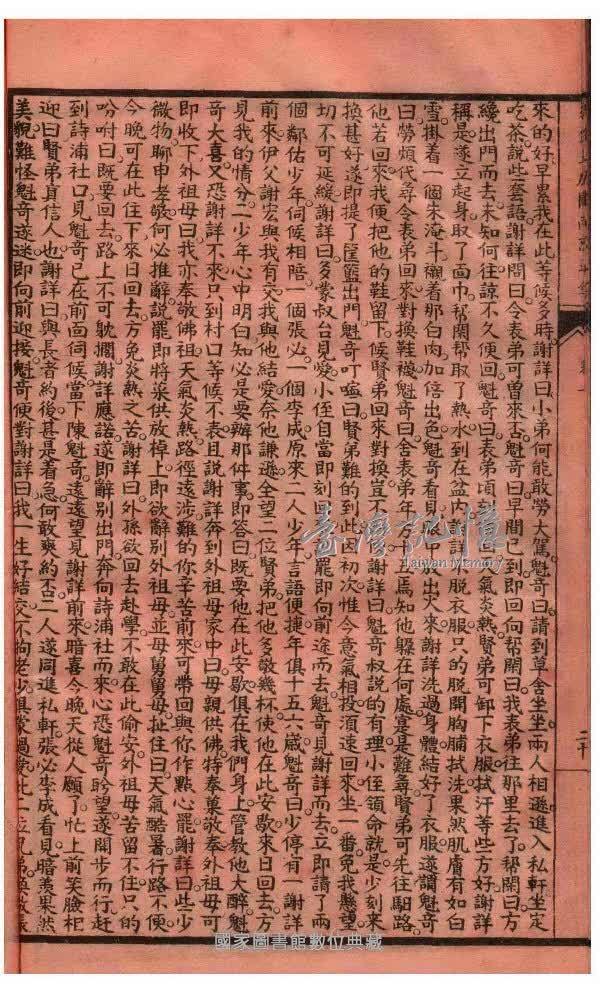 來的好早累我在此等候多時謝詳曰小弟何能敢勞大駕魁奇曰請到草舍坐坐兩人相遜進入私軒坐定
吃茶說些套語謝詳問曰令表弟可曾來否魁奇曰早間已到即回向帮閑曰我表弟往那里去了帮閑曰方
纔出門而去未知何往諒不久便回魁奇曰表弟頃刻 氣炎熱賢弟可卸下衣服拭汗等些方好謝詳
稱是遂立起身取了面巾帮閑帮取了熱水到在盆内謝詳 脫衣服只的脫開胸脯拭洗果然肌膚有如白
雪掛着一個朱淹斗襯着那白肉加倍出色魁奇看見眼中放出火來謝詳洗過身體結好了衣服遂謂魁奇
曰勞煩代尋令表弟回來對換鞋襪魁奇曰舍表弟年方十 焉知他躲在何處寔是難尋賢弟可先往馹路
他若回來我便把他的鞋留下候賢弟回來對換豈不 謝詳曰魁奇叔說的有理小侄領命就是少刻來
換甚好遂即提了筐籃出門魁奇叮嚀曰賢弟難的到此因初次惟今意氣相投須速回來坐一番免我懸望
切不可延緩謝詳曰多蒙叔台見愛小侄自當即刻回 罷即向前途而去魁奇見謝詳而去立即請了兩
個鄰佑少年伺候相陪一個張必一個李成原來二人少年言語便捷年俱十五六歲魁奇曰少停有一謝詳
前來伊父謝宏與我有交我與他結愛奈他謙遜全望二位賢弟把他多敬幾杯使他在此安歇來日回去方
見我的情分二少年心中明白知必是要辦那件事即答曰既要他在此安歇俱在我們身上管教他大醉魁
奇大喜又恐謝詳不來只到村口等候不表且說謝詳奔到外祖母家中曰母親供佛特奉菓敬奉外祖母可
即收下外祖母曰我亦奉敬佛祖天氣炎熱路徑遠涉難的你辛苦前來可帶回與你作點心罷謝詳曰些少
微物聊申孝敬何必推辭說罷即將菜供放棹上即欲辭別外祖母並母舅舅母扯住曰天氣酷暑行路不便
今晚可在此住下來日回去方免炎熱之苦謝詳曰外孫欲回去赴學不敢在此偷安外祖母苦留不住只的
吩咐曰既要回去路上不可躭擱謝詳應諾遂即辭別出門奔向詩浦社而來心恐魁奇盻望遂開步而行赶
到詩浦社口見魁奇已在前面伺候當下陳魁奇遠遠望見謝詳前來暗喜今晚天從人願了忙上前笑臉相
迎曰賢弟身信人也謝詳曰與長者約後甚是着急何敢爽約不二人遂同進私軒張必李成看見暗羨果然
美貌難怪魁奇遂迷即向前迎接魁奇便對謝詳曰我一生好結交不拘老少俱蒙過愛此二位兄弟
臺灣記憶
Taiwan Memory
二十
國家圖書館數位典藏